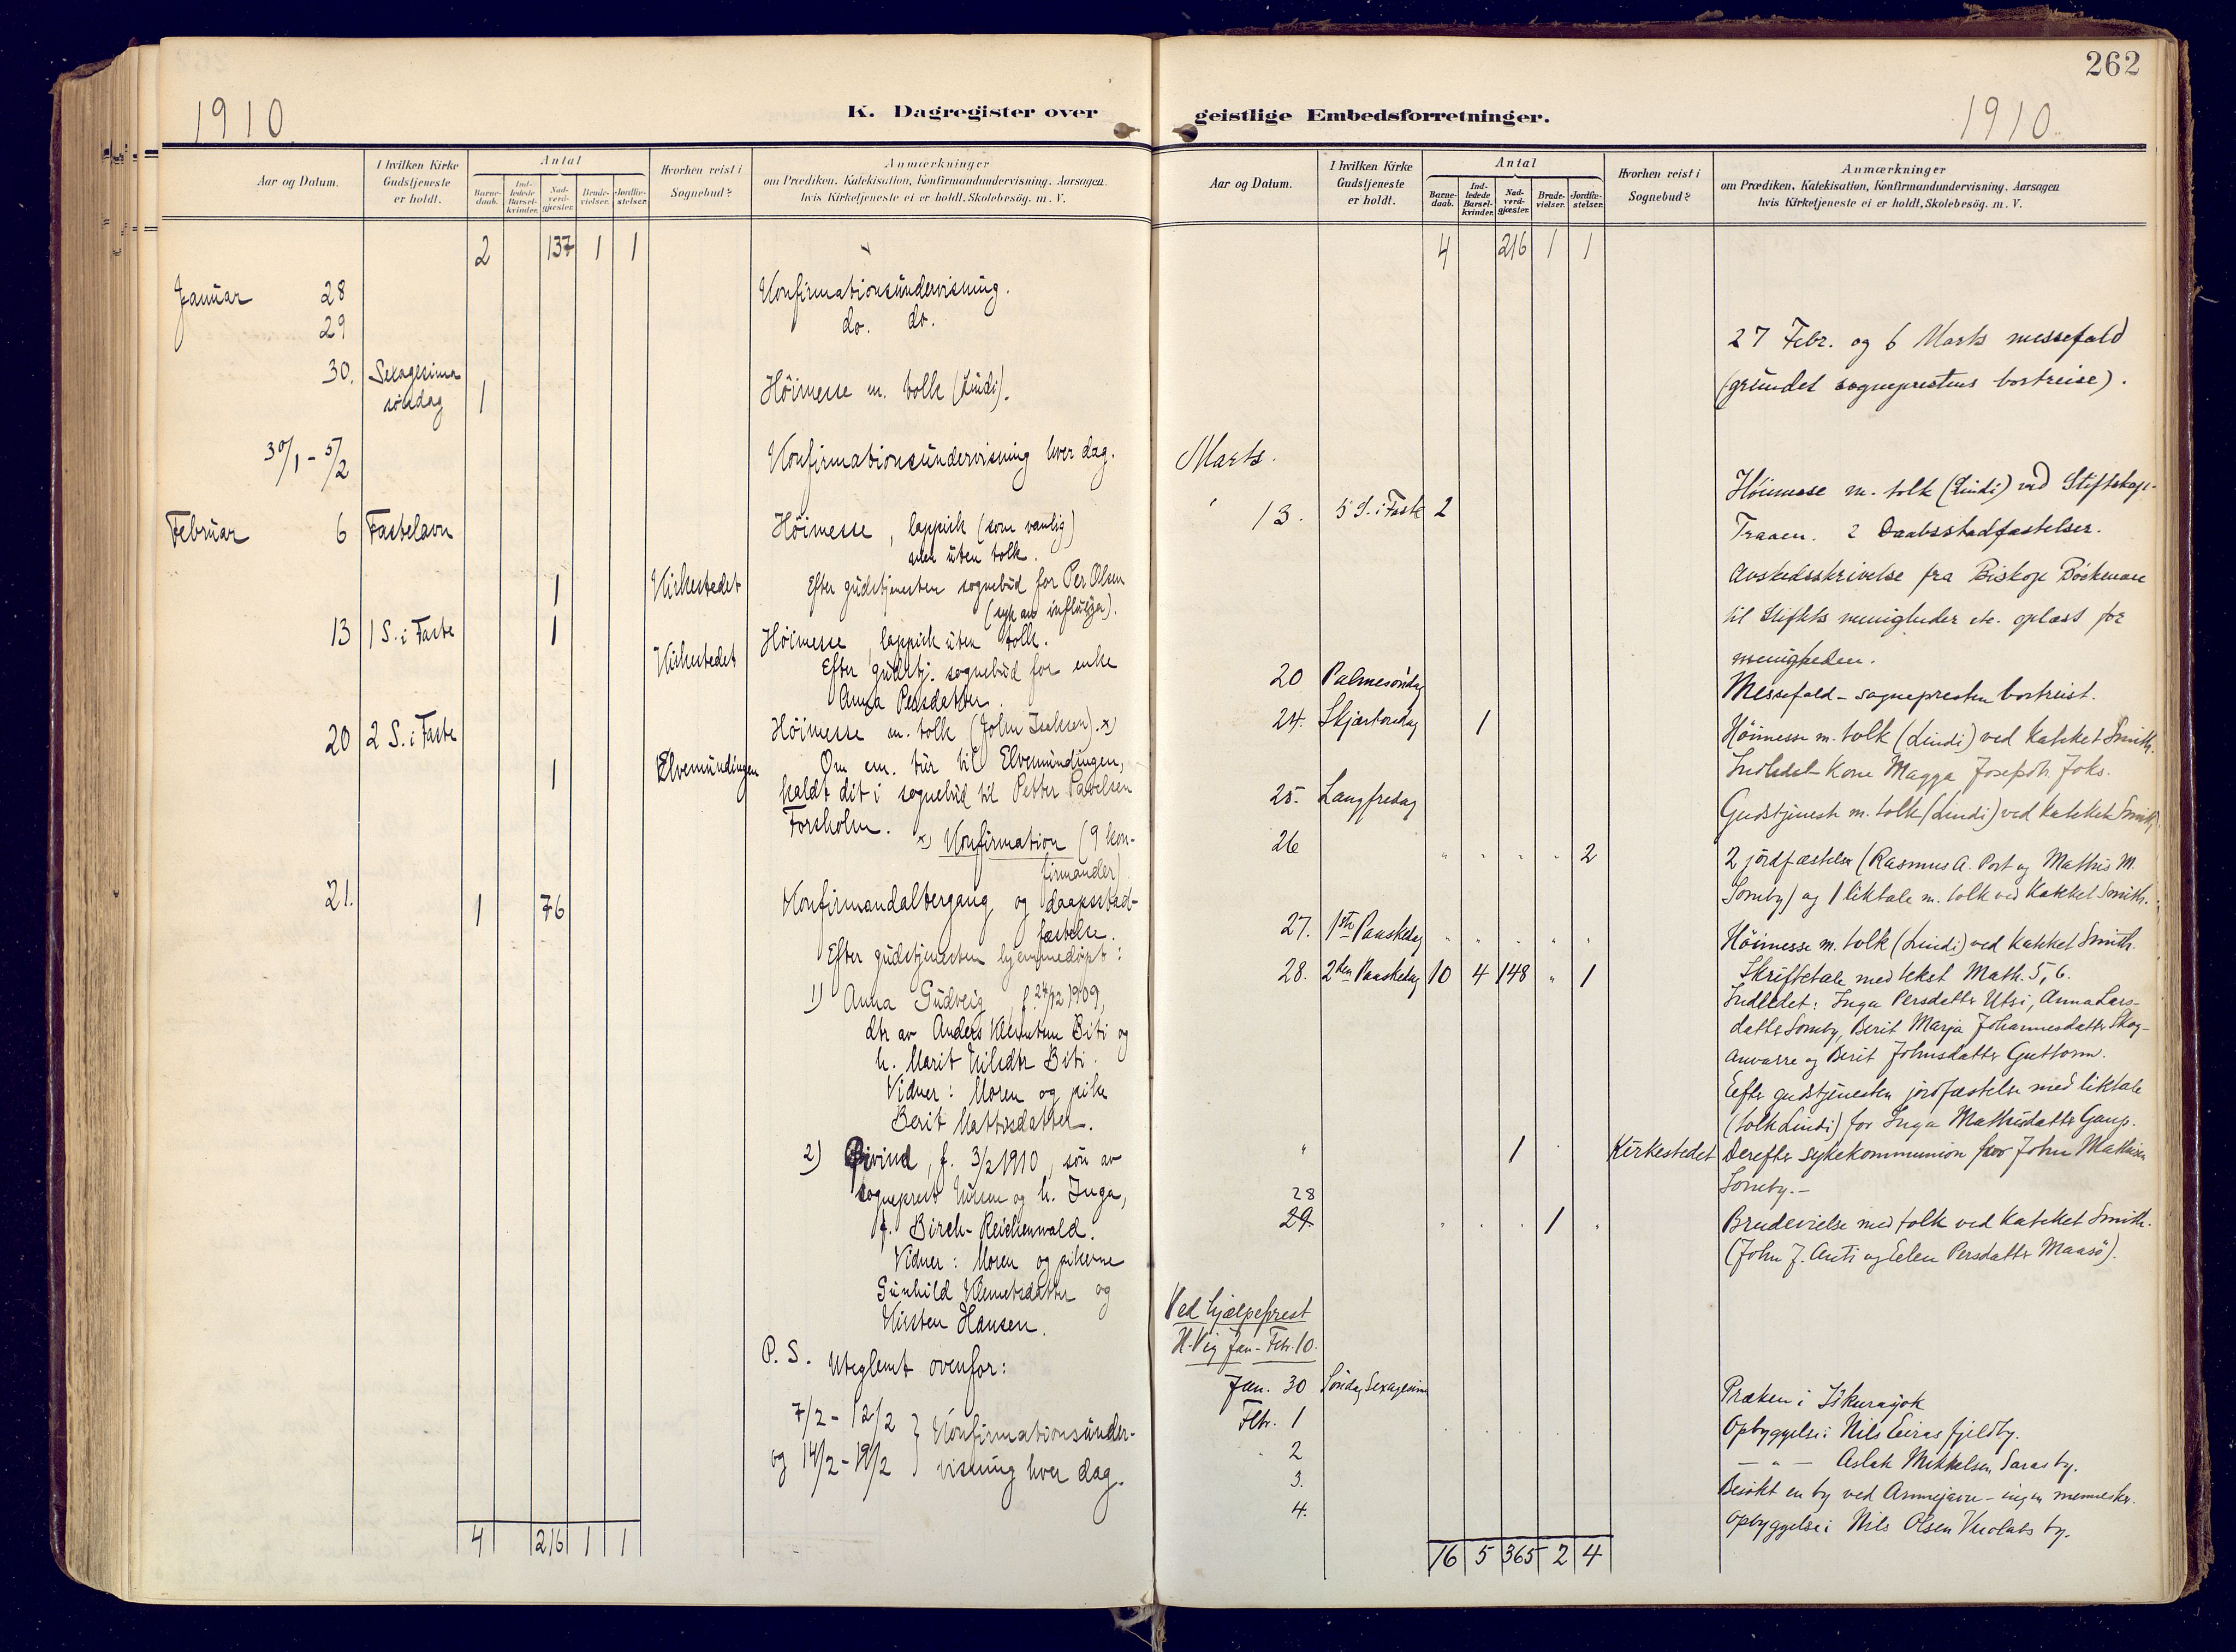 262
1910
K. Dagregister over
geistlige Embedsforretninger.
1910.
Aar og Datum.
I hvilken Kirke
Gudstjeneste
er holdt.
Antal
Barne-
daab.
Ind-
ledede
Barsel-
kvinder.
Nad-
verd-
gjæster.
Brude-
vielser.
Jordfæ-
stelser.
Hvorhen reist i
Sognebud?
Anmærkninger
om Prædiken, Katekisation, Konfirmandundervisning, Aarsagen,
hvis Kirketjeneste ei er holdt, Skolebesøg. m. V.
2 137 1 1
Januar 28 Konfirmationsundervisning.
29 do. do.
30. Sexagesima
søndag 1 Höimesse m. tolk (Lindi).
30/1 - 5/2 Konfirmationsundervisning hver dag.
Februar 6 Fastelavn Höimesse, lappisk (som vanlig)
men uten tolk.
1 Kirkestedet Efter gudstjenesten sognebud for Per Olsen
(syk av influenza).
13 1 S. i Faste 1 Höimesse, lappisk uten tolk.
Kirkestedet Efter gudstj. sognebud for enke
Anna Persdatter.
20 2 S. i Faste Höimesse m. tolk (John Isaksen). x)
1 Elvemundingen Om em. tur til Elvemundingen,
kaldt dit i sognebud til Petter Paulsen
Forsholm.
x) Konfirmation (9 kon-
firmander).
21. 1 76 Konfirmandaltergang og daapsstad-
fæstelse.
Efter gudstjenesten hjemmedöpt:
1) Anna Gudveig, f. 24/12 1909,
dtr av Anders Klemetsen Biti og
h. Marit Nilsdtr Biti.
Vidner: Moren og pike
Berit Mattisdatter.
2) Eivind, f. 3/2 1910, sön av
sogneprest Nissen og h. Inga,
f. Birch-Reichenwald.
Vidner: Moren og pikerne
Gunhild Klemetsdatter og
Kirsten Hansen.
P. S. Uteglemt ovenfor:
7/2 - 12/2 } Konfirmationsunder-
og 14/2 - 19/2 } visning hver dag.
4 216 1 1
Aar og Datum.
I hvilken Kirke
Gudstjeneste
er holdt.
Antal
Barne-
daab.
Ind-
ledede
Barsel-
kvinder.
Nad-
verd-
gjæster.
Brude-
vielser.
Jordfæ-
stelser.
Hvorhen reist i
Sognebud?
Anmærkninger
om Prædiken, Katekisation, Konfirmandundervisning, Aarsagen
hvis Kirketjeneste ei er holdt, Skolebesög. m. V.
4 216 1 1
27 Febr. og 6 Marts messefald
(grundet sogneprestens bortreise).
Marts.
13. 5 S. i Faste 2 Höimesse m. tolk (Lindi) ved Stiftskap.
Traaen. 2 Daabsstadfæstelser.
Avskedsskrivelse fra Biskop Böckman
til Stiftets menigheder etc. oplæst for
menigheden.
20 Palmesöndag Messefald - sognepresten bortreist.
24. Skjærtorsdag 1 Höimesse m. tolk (Lindi) ved kateket Smith.
Indledet - Kone Magga Josefsdtr. Joks.
25. Langfredag Gudstjeneste m. tolk (Lindi) ved kateket Smith.
26 " " " " 2 2 jordfæstelser (Rasmus A. Port og Mathis M.
Somby) og 1 liktale m. tolk ved kateket Smith.
27. 1ste Paaskedag " " " " " Höimesse m. tolk (Lindi) ved kateket Smith.
28. 2den Paaskedag 10 4 148 " 1 Skriftetale med tekst Math. 5, 6.
Indledet: Inga Persdatter Utsi, Anna Lars-
datter Somby, Berit Marja Johannesdatter Skog-
anvarre og Berit Johnsdatter Guttorm.
Efter gudstjenesten jordfæstelse med liktale
(tolk Lindi) for Inga Mathisdatter Gaup.
" 1 Kirkestedet Derefter sykekommunion for John Mathisen
Somby. -
28
29. " " " 1 " Brudevielse med tolk ved kateket Smith.
(John J. Anti og Elen Persdatter Maasö).
Ved hjælpeprest
H. Vig Jan - Febr. 10.
Jan. 30 Söndag Sexagesima Præken i Iskurasjok
Febr. 1 Opbyggelse i Nils Eiras fjeldby.
2 - " - Aslak Mikkelsen Saras by.
3. Besökt en by ved - ingen mennesker.
4. Opbyggelse i Nils Olsen Vuolabs by.
16 5 365 2 4